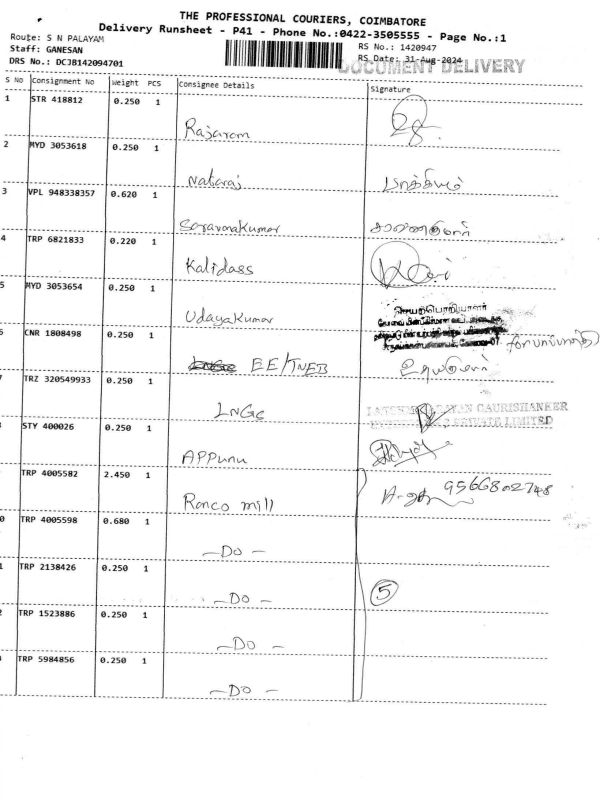 THE PROFESSIONAL COURIERS, COIMBATORE
Delivery Runsheet - P41 - Phone No.:0422-3505555 - Page No.:1
Route: S N PALAYAM
RS No.: 1420947
Staff: GANESAN
RS Date: 31-Aug-2024
DRS No.: DCJB142094701
DOCUMENT DELIVERY
S No Consignment No Weight PCS Consignee Details Signature
1 STR 418812 0.250 1
Rajaram
2 MYD 3053618 0.250 1
Nataraj
3 VPL 948338357 0.620 1
Saravanakumar சரவணகுமார்
4 TRP 6821833 0.220 1
Kalidass
5 MYD 3053654 0.250 1
செயற்பொறியாளர்
Udayakumar
CNR 1808498 0.250 1
EE/TNEB உதயகுமார்
TRZ 320549933 0.250 1
LNGS GAURISHANKER
PRIVATE LIMITED
STY 400026 0.250 1
APPunu
TRP 4005582 2.450 1
9566802748
Ranco mill
0 TRP 4005598 0.680 1
-Do-
1 TRP 2138426 0.250 1
5
-Do-
2 TRP 1523886 0.250 1
-Do-
TRP 5984856 0.250 1
-Do-